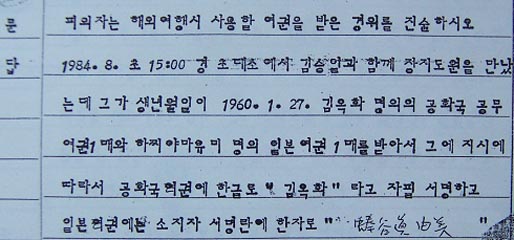 문 피의자는 해외여행시 사용할 여권을 받은 경위를 진술하시오
답 1984. 8. 초 15:00 경 초대소에서 김승일과 함께 장지도원을 만났
는데 그가 생년월일이 1960. 1. 27. 김옥화 명의의 공화국 공무
여권1매와 하찌야마유미 명의 일본여권 1매를 받아서 그에 지시에
따라서 공화국여권에 한글로 " 김옥화 " 라고 자필 서명하고
일본여권에는 소지자 서명란에 한자로 " 蜂谷眞由美 "